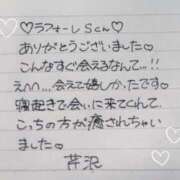 ♡ラフォーレ Sさん♡
ありがとうございました♡
こんなすぐ会えるなんて..!!
え〜ん...会えて嬉しかったです♡
寝起きで会いに来てくれて
こっちの方が癒されちゃい
ました♡
芹沢